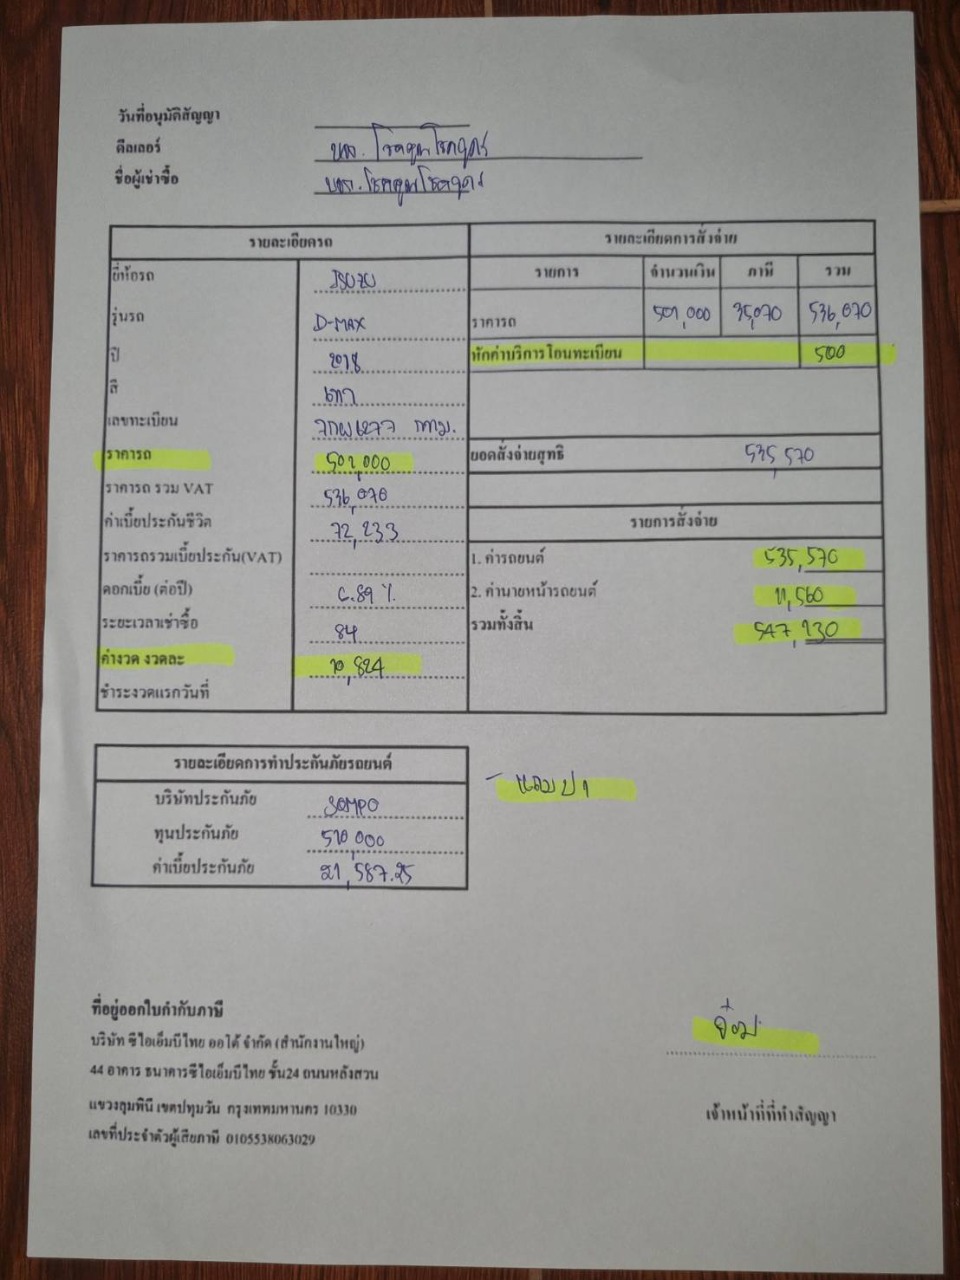 วันที่อนุมัติสัญญา
ดีลเลอร์ บจก. โชคคูณโชคอุดร
ชื่อผู้เช่าซื้อ บจก. โชคคูณโชคอุดร
รายละเอียดรถ
ยี่ห้อรถ ISUZU
รุ่นรถ D-MAX
ปี 2018
สี เทา
เลขทะเบียน กทม.
ราคารถ 501,000
ราคารถ รวม VAT 536,070
ค่าเบี้ยประกันชีวิต 72,233
ราคารถรวมเบี้ยประกัน(VAT)
ดอกเบี้ย (ต่อปี) 6.89 %
ระยะเวลาเช่าซื้อ 84
ค่างวด งวดละ 10,824
ชำระงวดแรกวันที่
รายละเอียดการสั่งจ่าย
รายการ จำนวนเงิน ภาษี รวม
ราคารถ 501,000 35,070 536,070
หักค่าบริการโอนทะเบียน 500
ยอดสั่งจ่ายสุทธิ 535,570
รายการสั่งจ่าย
1. ค่ารถยนต์ 535,570
2. ค่านายหน้ารถยนต์ 11,560
รวมทั้งสิ้น 547,130
รายละเอียดการทำประกันภัยรถยนต์
บริษัทประกันภัย SOMPO
ทุนประกันภัย 510,000
ค่าเบี้ยประกันภัย 21,587.25
- แถม ป 1
ที่อยู่ออกใบกำกับภาษี
บริษัท ซีไอเอ็มบีไทย ออโต้ จำกัด (สำนักงานใหญ่)
44 อาคาร ธนาคารซีไอเอ็มบีไทย ชั้น24 ถนนหลังสวน
แขวงลุมพินี เขตปทุมวัน กรุงเทพมหานคร 10330
เลขที่ประจำตัวผู้เสียภาษี 0105538063029
เจ้าหน้าที่ที่ทำสัญญา